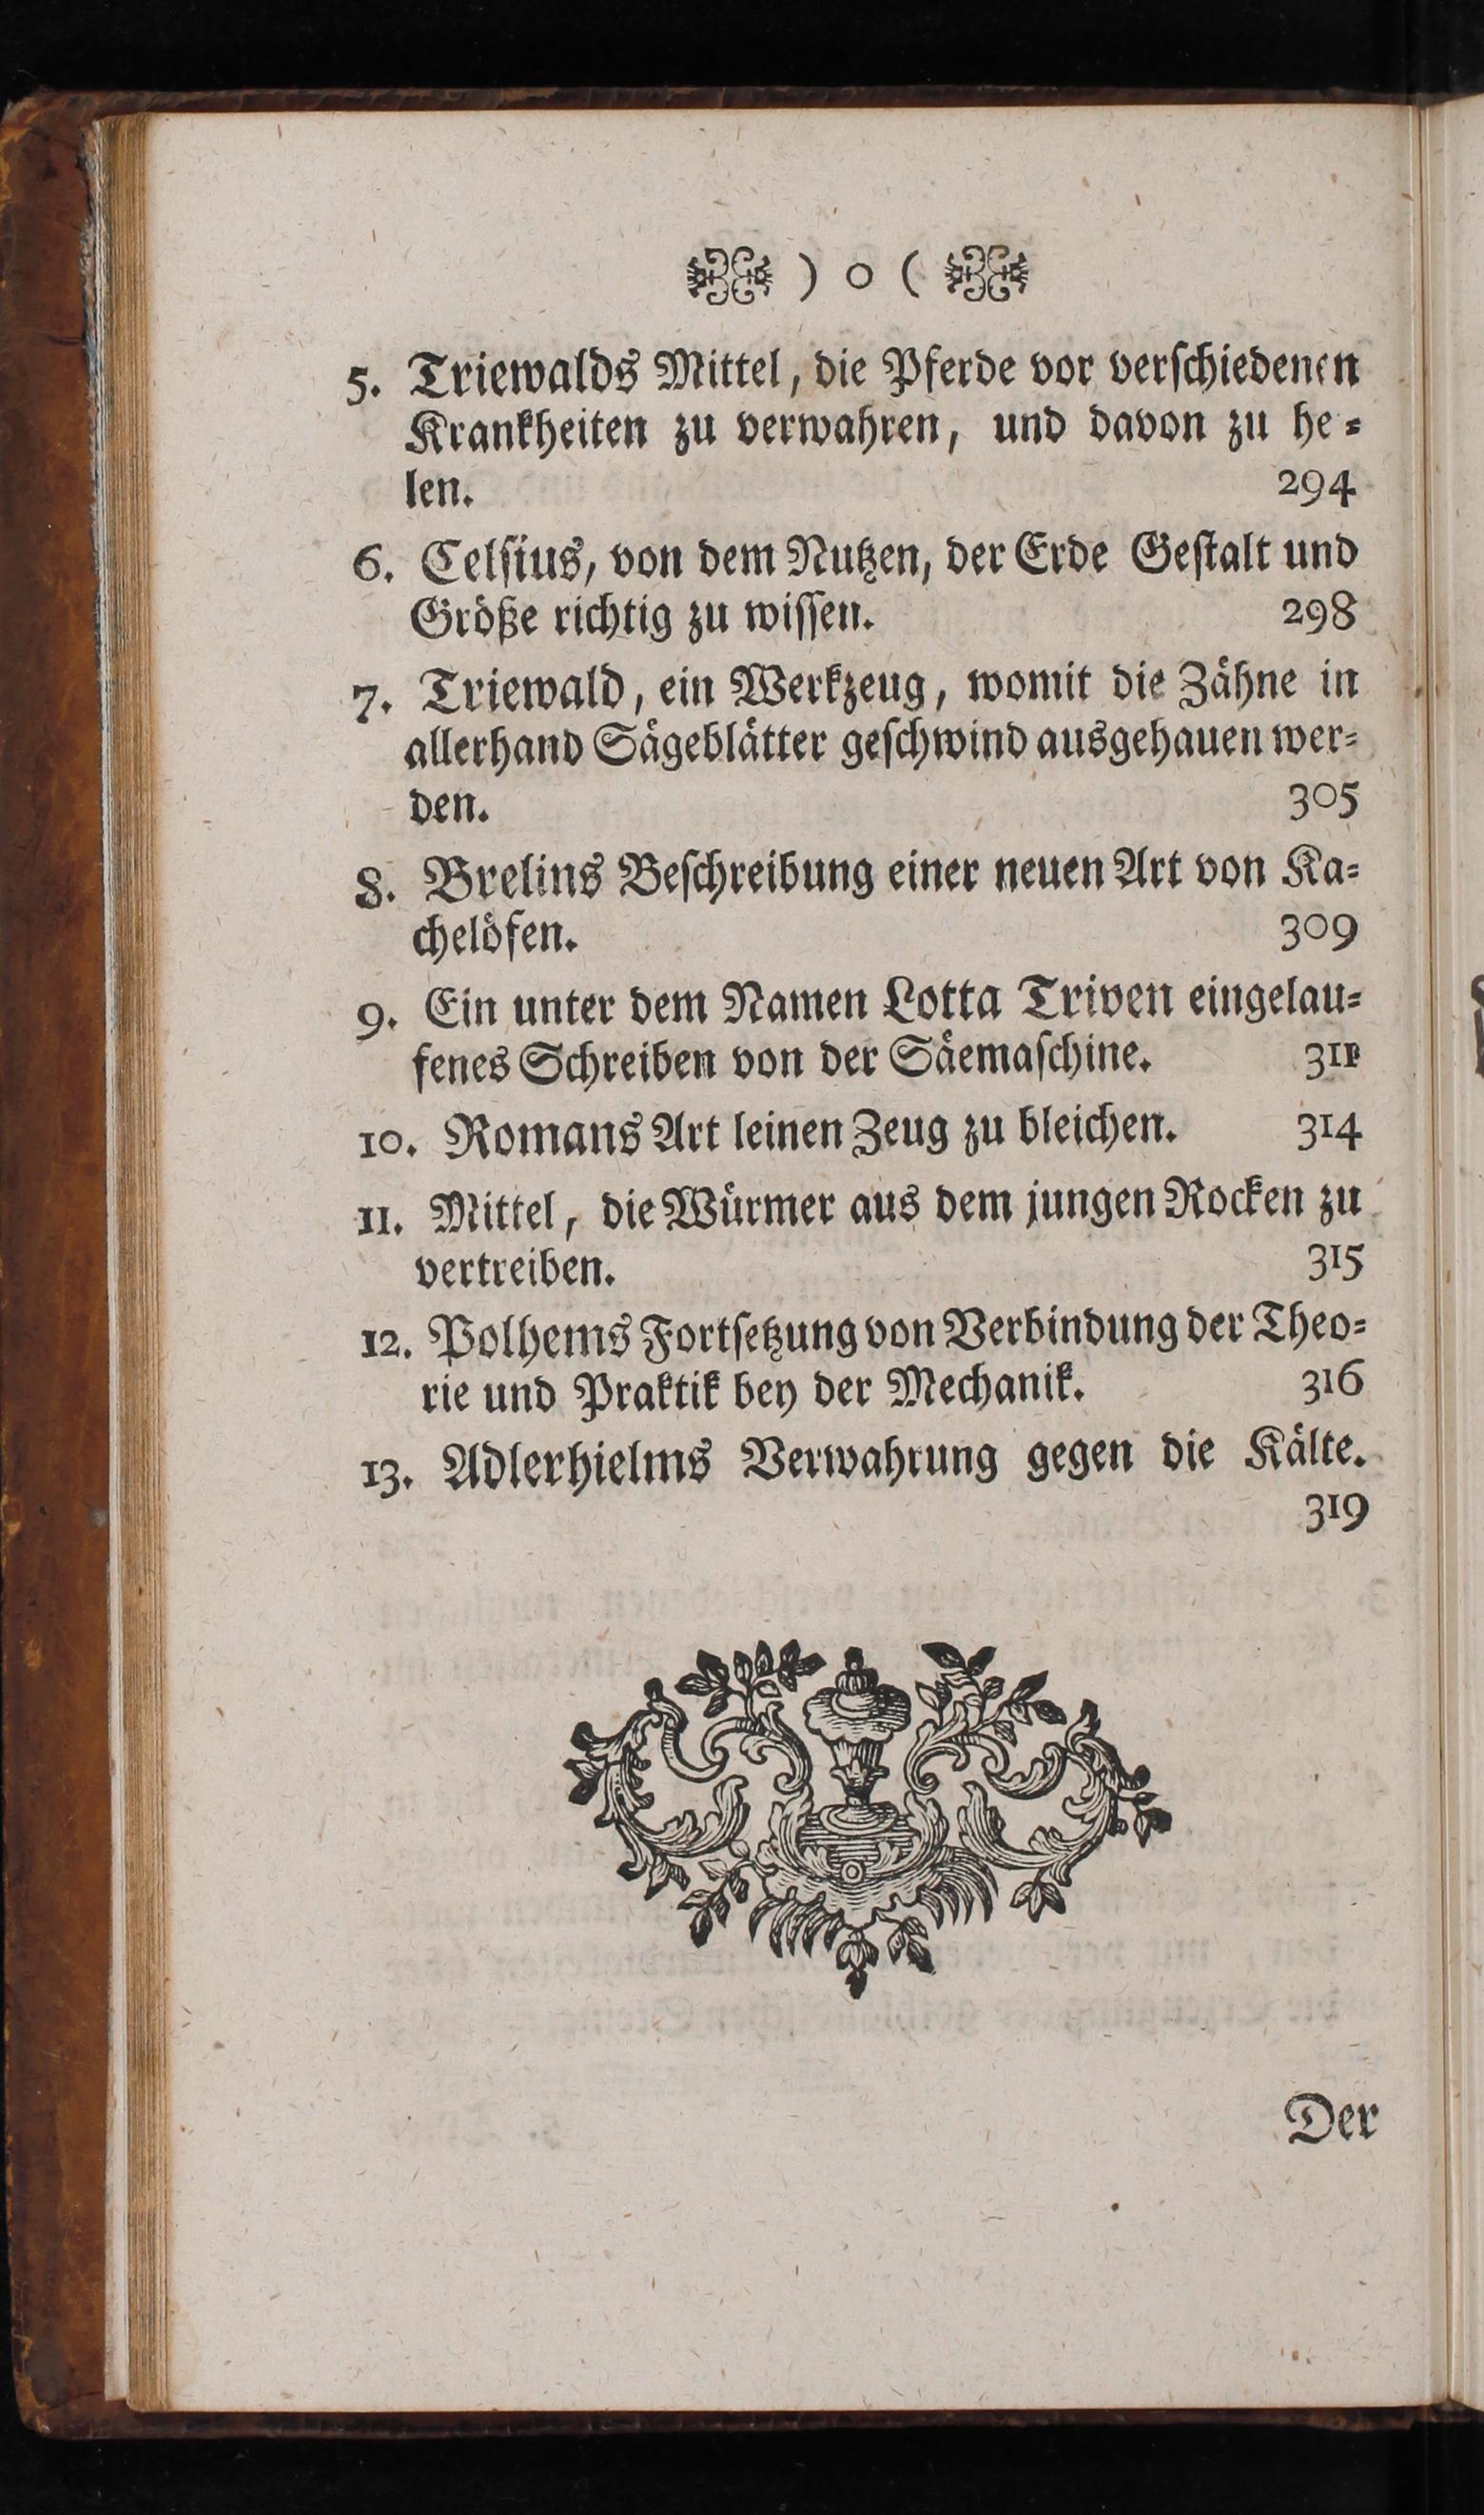 ) o (
5. Triewalds Mittel, die Pferde vor verschiedenen
Krankheiten zu verwahren, und davon zu he=
len. 294
6. Celsius, von dem Nutzen, der Erde Gestalt und
Größe richtig zu wissen. 298
7. Triewald, ein Werkzeug, womit die Zähne in
allerhand Sägeblätter geschwind ausgehauen wer=
den. 305
8. Brelins Beschreibung einer neuen Art von Ka=
chelöfen. 309
9. Ein unter dem Namen Lotta Triven eingelau=
fenes Schreiben von der Säemaschine. 311
10. Romans Art leinen Zeug zu bleichen. 314
11. Mittel, die Würmer aus dem jungen Rocken zu
vertreiben. 315
12. Polhems Fortsetzung von Verbindung der Theo=
rie und Praktik bey der Mechanik. 316
13. Adlerhielms Verwahrung gegen die Kälte.
319
Der